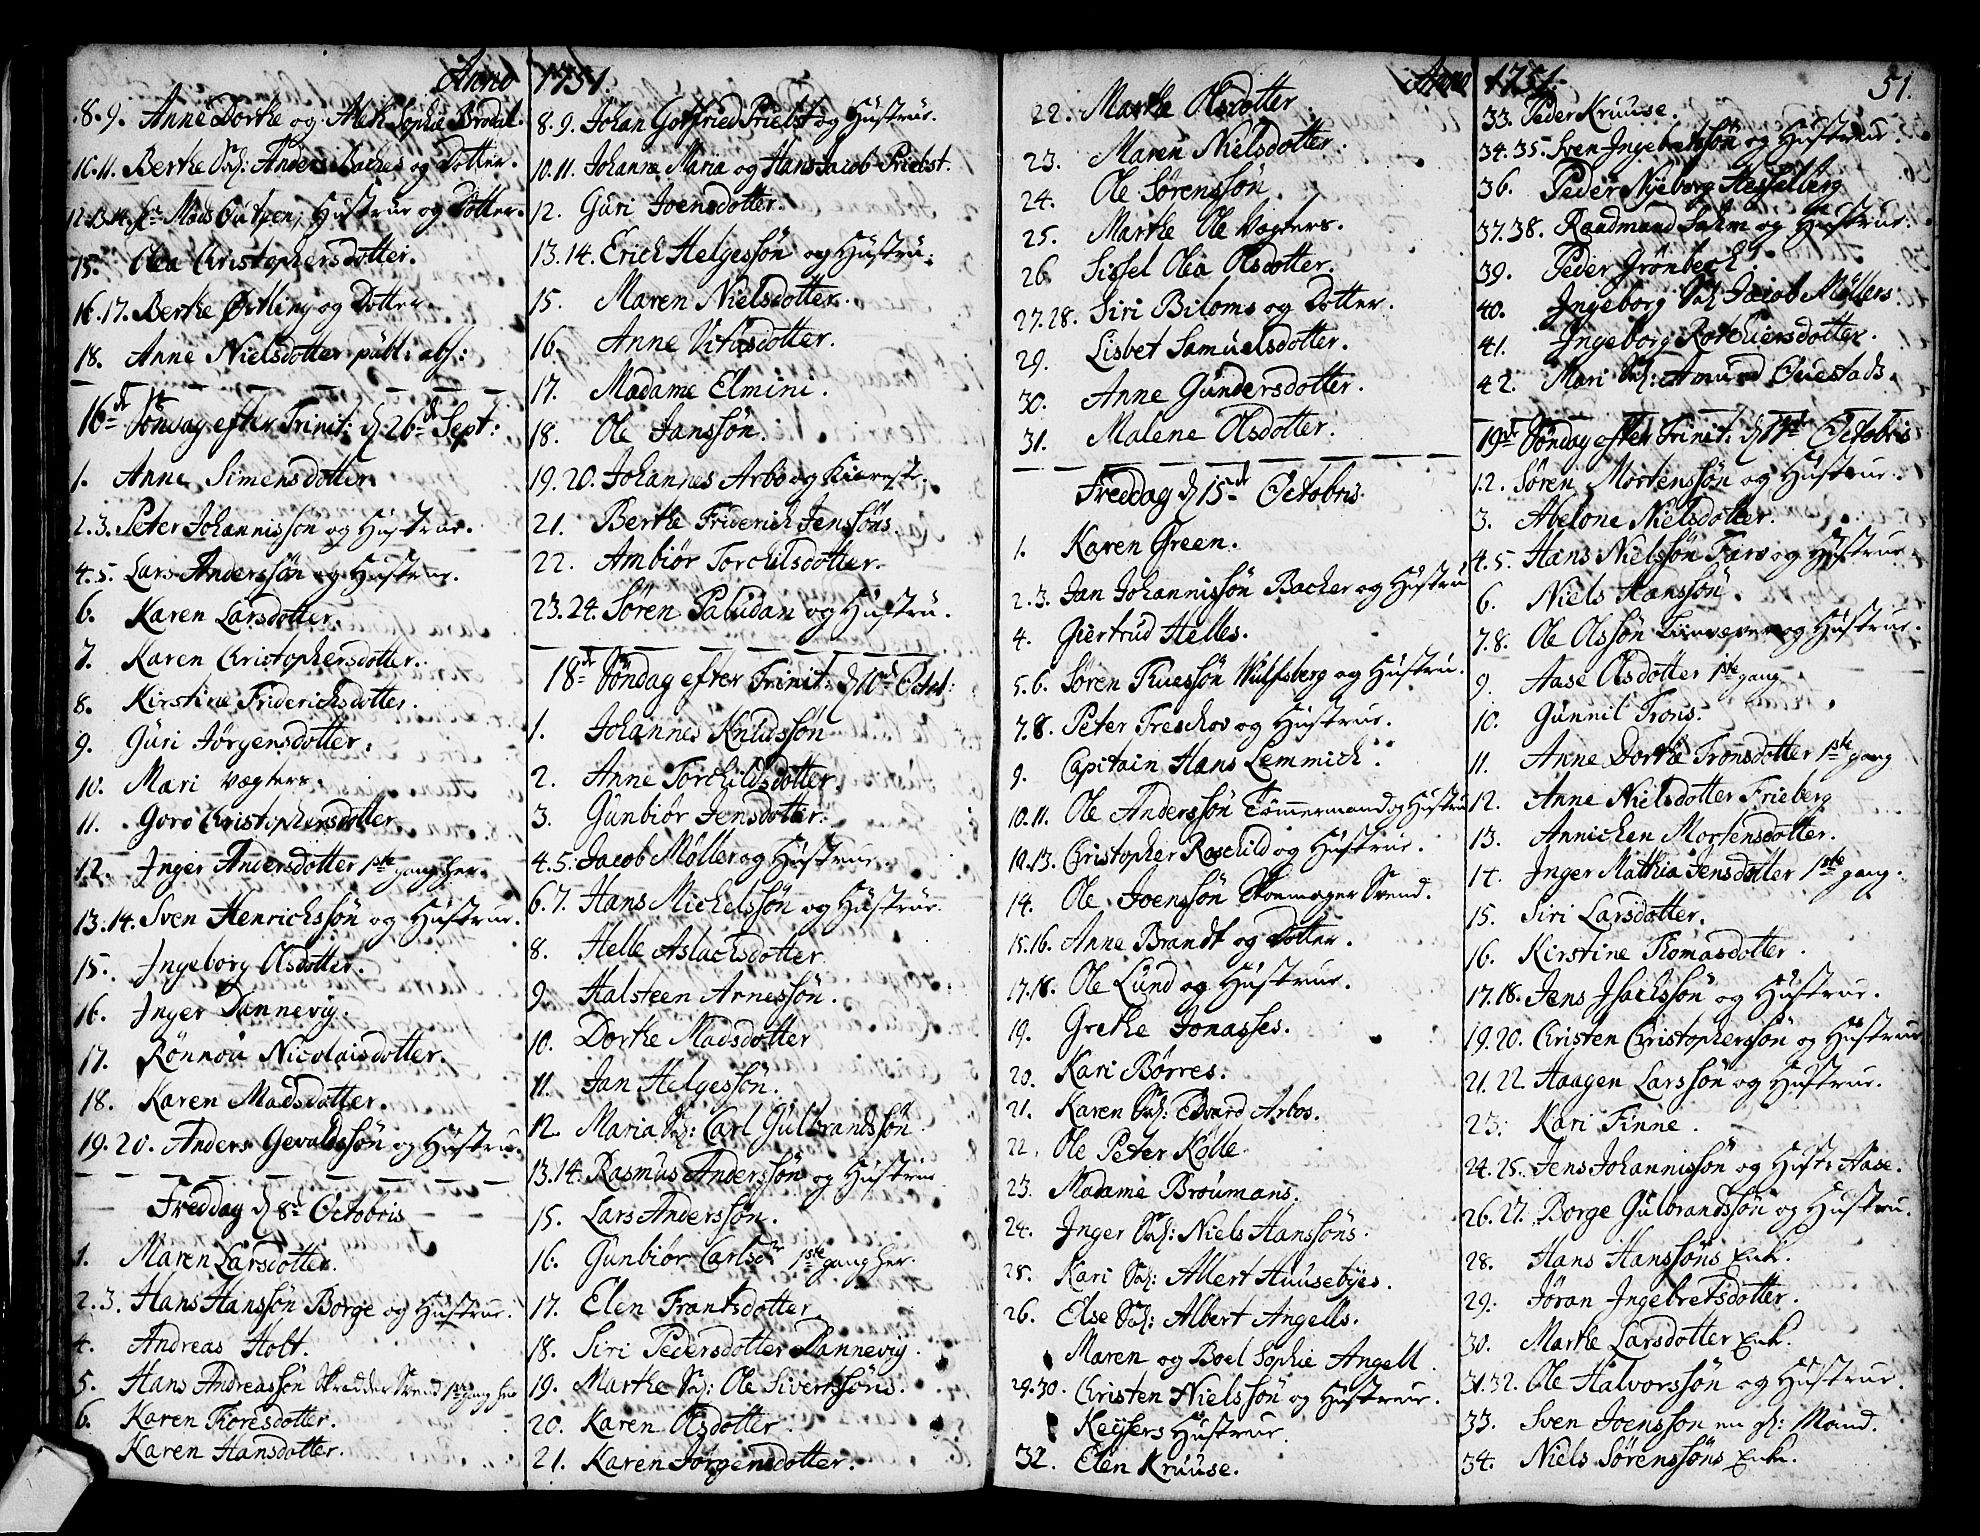 Anno 1751.
8. 9. Anne Dorthe og Aleth Sophie Brodal.
10. 11. Berthe Sal: Anders Baches og Dotter.
12. 13. 14. Hr Mads Outzen, Hustrue og Dotter.
15. Olea Christophersdotter.
16. 17. Berthe Østling og Dotter.
18. Anne Nielsdotter publ: abs:
16de Søndag efter Trinit: d 26de Sept:
1. Anne Simensdotter
2. 3. Peter Johannissøn og Hustrue.
4. 5. Lars Anderssøn og Hustrue.
6. Karen Larsdotter.
7. Karen Christophersdotter.
8. Kirstine Friderichsdotter.
9. Guri Jørgensdotter.
10. Mari Vægters.
11. Goro Christophersdotter
12. Inger Andersdotter 1ste gang her.
13. 14. Sven Henrichssøn og Hustrue.
15. Ingeborg Olsdotter.
16. Inger Dannevig.
17. Rønnou Nicolaisdotter.
18. Karen Madsdotter.
19. 20. Anders Gevaldssøn og Hustrue.
Freddag d 8de Octobris
1. Maren Larsdotter.
2. 3. Hans Hanssøn Borge og Hustrue.
4. Andreas Holt.
5. Hans Andreassøn Skredder Svend 1ste gang her
6. Karen Thoresdotter.
Karen Hansdotter.
8. 9. Johan Gotfried Prielst og Hustrue.
10. 11. Johanne Maria og Hans Jacob Prielst.
12. Guri Joensdotter.
13. 14. Erich Helgessøn og Hustru.
15. Maren Nielsdotter.
16. Anne Vitusdotter.
17. Madame Elmini.
18. Ole Janssøn.
19. 20. Johannes Arbo og Kiereste.
21. Berthe Friderich Jenssøns.
22. Ambiør Torchilsdotter.
23. 24. Søren Paludan og Hustru.
18de Søndag efter Trinit: d 10de Octob:
1. Johannes Knudssøn
2. Anne Torchildsdotter.
3. Gunbiør Jensdotter.
4. 5. Jacob Møller og Hustrue.
6. 7. Hans Michelssøn og Hustrue.
8. Helle Aslachsdotter
9. Halsteen Arnessøn.
10. Dorthe Madsdotter
11. Jan Helgessøn.
12. Maria Sal: Carl Gulbrandssøn
13. 14. Rasmus Anderssøn og Hustrue
15. Lars Anderssøn.
16. Gunbiør Carlsdr 1ste gang her.
17. Elen Frantsdotter
18. Siri Pedersdotter Dannevig.
19. Marthe Sal: Ole Siverssøns.
20. Karen Olsdotter.
21. Karen Jørgensdotter.
Anno 1751. 51.
22. Marthe Olsdotter.
23. Maren Nielsdotter.
24. Ole Sørenssøn.
25. Marthe Ole Vagters.
26. Sissel Olea Olsdotter.
27. 28. Siri Biloms og Dotter.
29. Lisbet Samuelsdotter.
30. Anne Gundersdotter.
31. Malene Olsdotter.
Freddag d 15de Octobris.
1. Karen Green.
2. 3. Jan Johannissøn Bacher og Hustru
4. Giertrud Helles.
5. 6. Søren Thuessøn Wulfsberg og Hustru.
7. 8. Peter Treschov og Hustrue.
9. Capitain Hans Lemmich.
10. 11. Ole Anderssøn Tømmermand og Hustru
12. 13. Christopher Roschild og Hustrue.
14. Ole Joenssøn Skoemager Svend.
15. 16. Anne Brandt og Dotter.
17. 18. Ole Lund og Hustrue.
19. Grethe Jonasses.
20. Kari Børres.
21. Karen Sal: Edvard Arbos.
22. Ole Peter Kolle
23. Madame Broumans.
24. Inger Sal: Niels Hanssøns.
25. Kari Sal: Albert Huusebyes.
26. Else Sal: Albert Angells.
Maren og Boel Sophie Angell.
29. 30. Christen Nielssøn og Hustrue.
Keysers Hustrue.
32. Elen Kruuse.
33. Peder Kruuse.
34. 35. Sven Ingebretssøn og Hustrue.
36. Peder Nyeborg Hesselberg
37. 38. Raadmand Sahm og Hustrue.
39. Peder Grønbech.
40. Ingeborg Sal Jacob Møllers
41. Ingeborg Rotkiersdotter.
42. Mari Sal: Amund Ouestads.
19de Søndag efter Trinit. d 17de Octobris
1. 2. Søren Mortenssøn og Hustrue.
3. Abelone Nielsdotter.
4. 5. Hans Nielssøn Farv og Hustrue
6. Niels Hanssøn.
7. 8. Ole Olssøn Linvæver og Hustrue.
9. Aase Olsdotter 1ste gang
10. Gunnil Trons.
11. Anne Dorthe Tronsdotter 1ste gang
12. Anne Nielsdotter Frieberg
13. Annichen Mortensdotter.
14. Inger Mathia Jensdotter 1ste gang.
15. Siri Larsdotter.
16. Kirstine Thomasdotter.
17. 18. Jens Isachssøn og Hustrue.
19. 20. Christen Christopherssøn og Hustrue
21. 22. Haagen Larssøn og Hustrue.
23. Kari Finne.
24. 25. Jens Johannissøn og Hust: Aase.
26. 27. Borge Gulbrandssøn og Hustru.
28. Hans Hanssøns Enk.
29. Jøran Ingebretsdotter.
30. Marthe Larsdotter Enk.
31. 32. Ole Halvorssøn og Hustrue.
33. Sven Joenssøn en gl: Mand.
34. Niels Sørenssøns Enk.